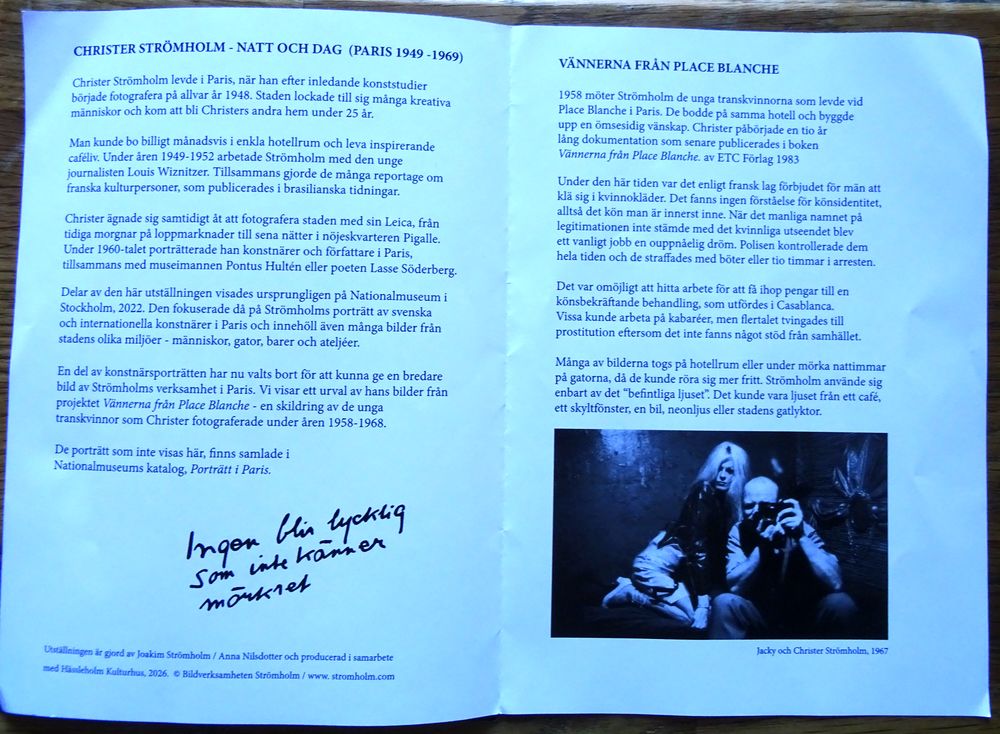 CHRISTER STRÖMHOLM - NATT OCH DAG (PARIS 1949 -1969)
Christer Strömholm levde i Paris, när han efter inledande konststudier
började fotografera på allvar år 1948. Staden lockade till sig många kreativa
människor och kom att bli Christers andra hem under 25 år.
Man kunde bo billigt månadsvis i enkla hotellrum och leva inspirerande
caféliv. Under åren 1949-1952 arbetade Strömholm med den unge
journalisten Louis Wiznitzer. Tillsammans gjorde de många reportage om
franska kulturpersoner, som publicerades i brasilianska tidningar.
Christer ägnade sig samtidigt åt att fotografera staden med sin Leica, från
tidiga morgnar på loppmarknader till sena nätter i nöjeskvarteren Pigalle.
Under 1960-talet porträtterade han konstnärer och författare i Paris,
tillsammans med museimannen Pontus Hultén eller poeten Lasse Söderberg.
Delar av den här utställningen visades ursprungligen på Nationalmuseum i
Stockholm, 2022. Den fokuserade då på Strömholms porträtt av svenska
och internationella konstnärer i Paris och innehöll även många bilder från
stadens olika miljöer - människor, gator, barer och ateljéer.
En del av konstnärsporträtten har nu valts bort för att kunna ge en bredare
bild av Strömholms verksamhet i Paris. Vi visar ett urval av hans bilder från
projektet Vännerna från Place Blanche - en skildring av de unga
transkvinnor som Christer fotograferade under åren 1958-1968.
De porträtt som inte visas här, finns samlade i
Nationalmuseums katalog, Porträtt i Paris.
Ingen blir lycklig
som inte känner
mörkret
Utställningen är gjord av Joakim Strömholm / Anna Nilsdotter och producerad i samarbete
med Hässleholm Kulturhus, 2026. © Bildverksamheten Strömholm / www. stromholm.com
VÄNNERNA FRÅN PLACE BLANCHE
1958 möter Strömholm de unga transkvinnorna som levde vid
Place Blanche i Paris. De bodde på samma hotell och byggde
upp en ömsesidig vänskap. Christer påbörjade en tio år
lång dokumentation som senare publicerades i boken
Vännerna från Place Blanche. av ETC Förlag 1983
Under den här tiden var det enligt fransk lag förbjudet för män att
klä sig i kvinnokläder. Det fanns ingen förståelse för könsidentitet,
alltså det kön man är innerst inne. När det manliga namnet på
legitimationen inte stämde med det kvinnliga utseendet blev
ett vanligt jobb en ouppnåelig dröm. Polisen kontrollerade dem
hela tiden och de straffades med böter eller tio timmar i arresten.
Det var omöjligt att hitta arbete för att få ihop pengar till en
könsbekräftande behandling, som utfördes i Casablanca.
Vissa kunde arbeta på kabaréer, men flertalet tvingades till
prostitution eftersom det inte fanns något stöd från samhället.
Många av bilderna togs på hotellrum eller under mörka nattimmar
på gatorna, då de kunde röra sig mer fritt. Strömholm använde sig
enbart av det ”befintliga ljuset”. Det kunde vara ljuset från ett café,
ett skyltfönster, en bil, neonljus eller stadens gatlyktor.
Jacky och Christer Strömholm, 1967